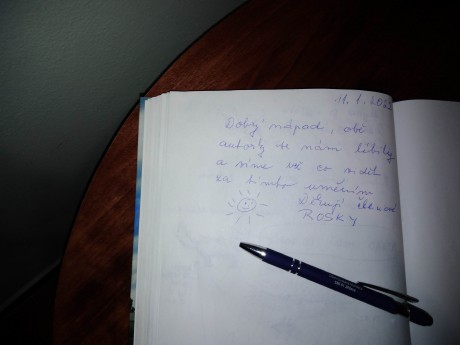 11. 1. 2022
Dobrý nápad, obě
autorky se nám líbily
a víme už co vidět
za tímto uměním
Děkují členové
ROSKY